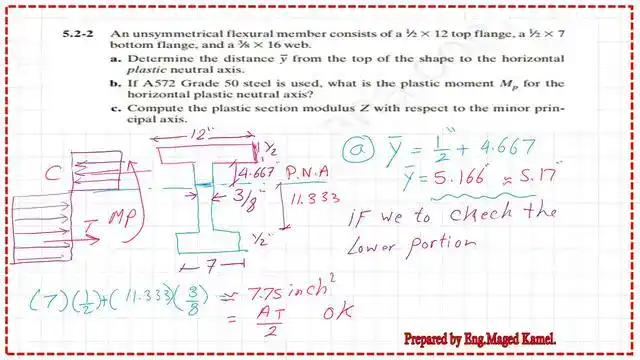 5.2-2 An unsymmetrical flexural member consists of a ½ × 12 top flange, a ½ × 7
bottom flange, and a ⅜ × 16 web.
a. Determine the distance y̅ from the top of the shape to the horizontal
plastic neutral axis.
b. If A572 Grade 50 steel is used, what is the plastic moment Mp for the
horizontal plastic neutral axis?
c. Compute the plastic section modulus Z with respect to the minor prin-
cipal axis.
12"
1/2"
C
4.667"
P.N.A
3/8"
11.333
T
MP
1/2"
7
(7)(1/2)+(11.333)(3/8) ≈ 7.75 inch²
= AT/2 OK
ⓐ y̅ = 1/2" + 4.667
y̅ = 5.166" ≈ 5.17"
IF we to check the
Lower portion
Prepared by Eng.Maged Kamel.